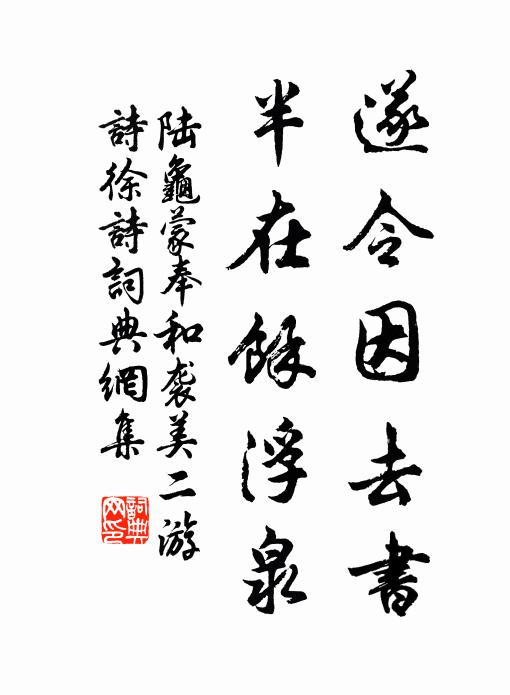 遂令因去書
半在餘浮泉
陸龜蒙奉和袭美二游
詩徐詩詞典網集
詞典